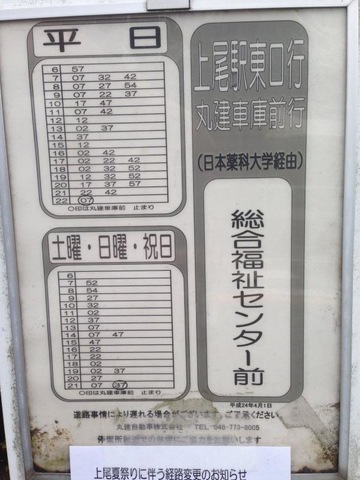 平日
6 57
7 07 32 42
8 07 27 54
9 07 22 37
10 17 47
11 07 42
12 12
13 02 37
14 37
15 12
16 02 42
17 02 22 42
18 02 32 52
19 12 32 52
20 17 37 57
21 22 42
22 07
○印は丸建車庫前 止まり
土曜・日曜・祝日
6
7 52
8 54
9 27
10 32
11 02
12 02
13 07
14 07 47
15 47
16 22
17 22
18 02
19 02
20 02
21 07 37
○印は丸建車庫前 止まり
上尾駅東口行
丸建車庫前行
(日本薬科大学経由)
総合福祉センター前
平成24年4月1日
道路事情により遅れる場合がございます。ご了承ください
丸建自動車株式会社 TEL 048-773-8005
上尾夏祭りに伴う経路変更のお知らせ